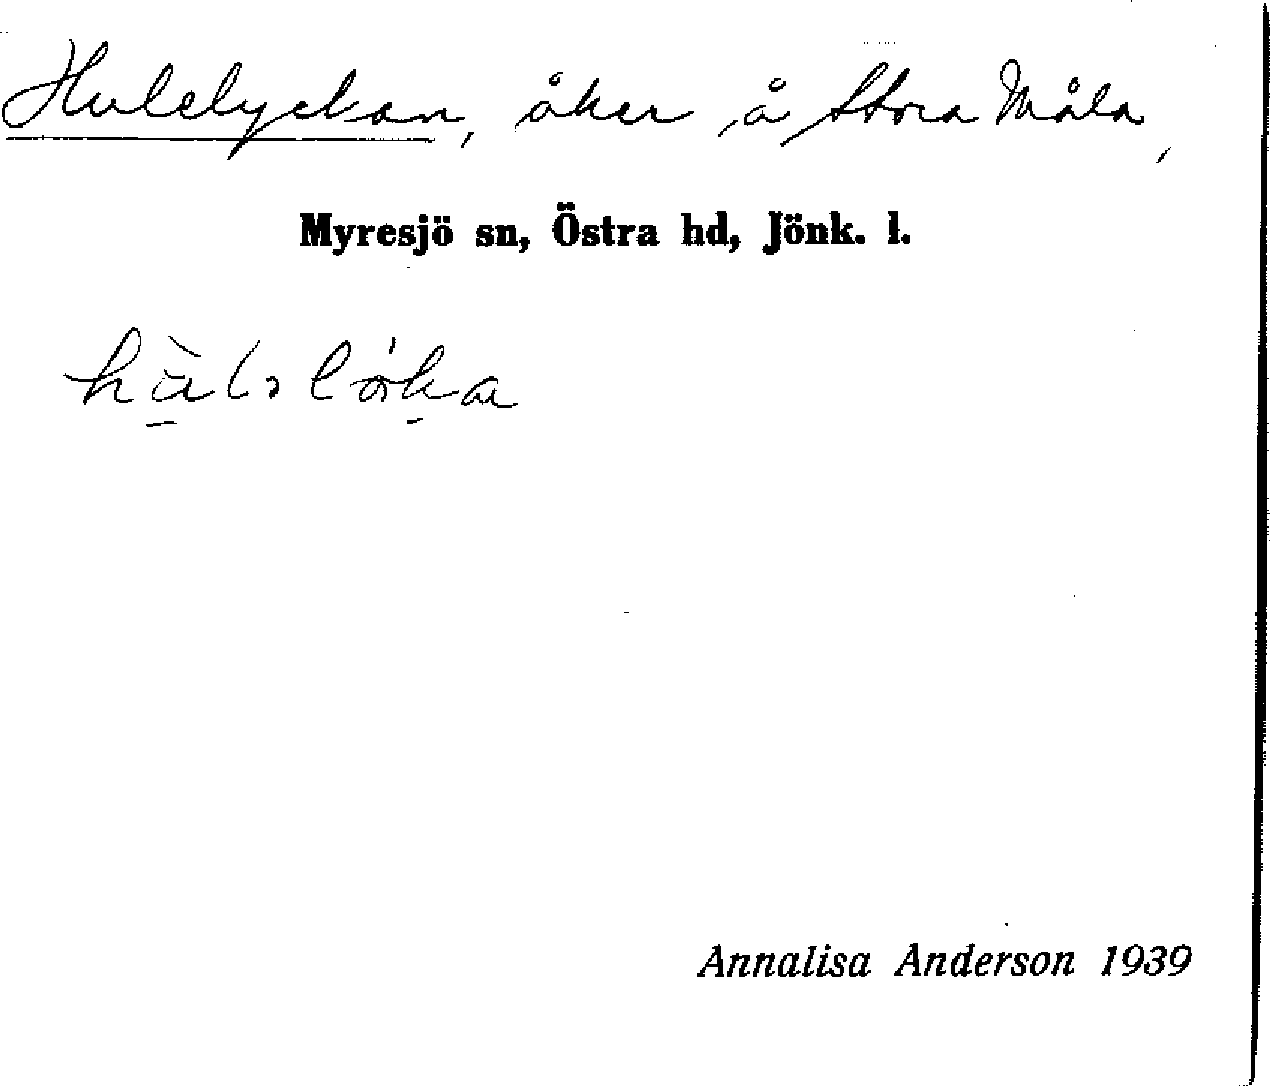 Hulelyckan, åker å Stora Måla,
Myresjö sn, Östra hd, Jönk. l.
Annalisa Anderson 1939